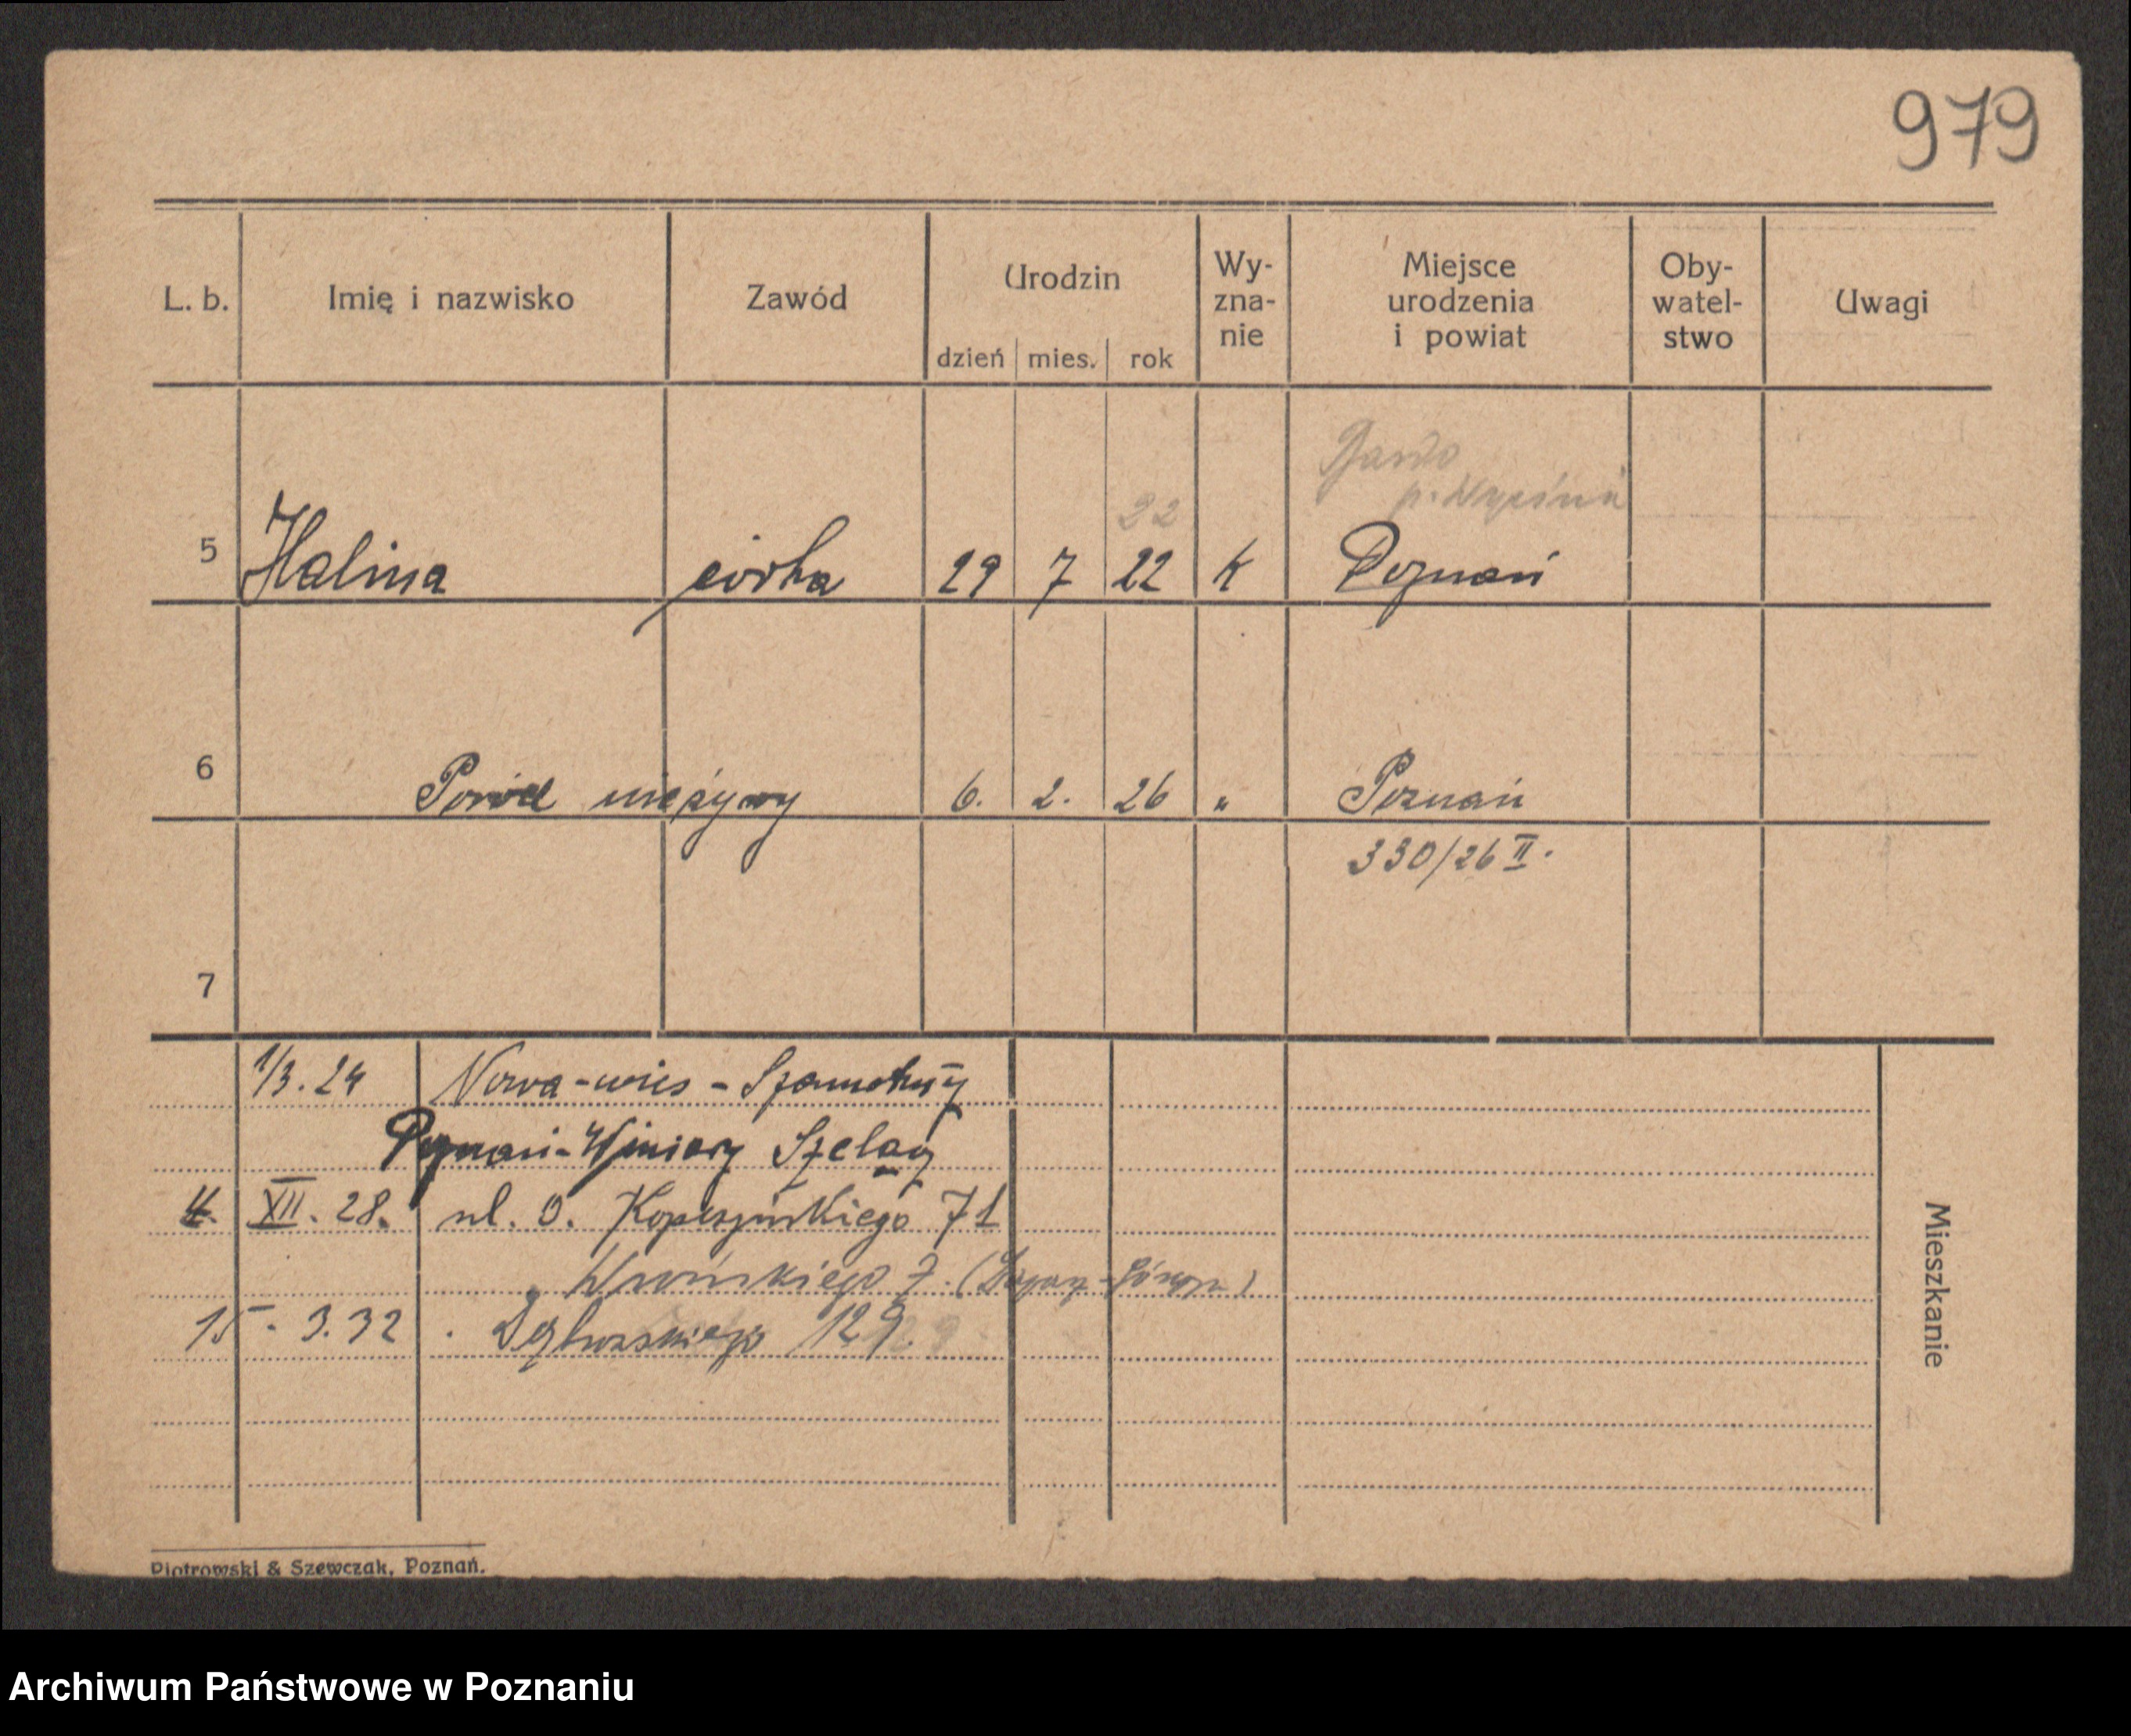 979
L. b.
Imię i nazwisko
Zawód
Urodzin
dzień mies. rok
Wy-
zna-
nie
Miejsce
urodzenia
i powiat
Oby-
watel-
stwo
Uwagi
22
5 Halina córka 29 7 22 K Poznań
6 Poród nieżywy 6. 2. 26 " Poznań
330/26 II.
7
1/3. 24 Nowa-wieś - Szamotuły
Poznań-Winiary Szeląg
4. XII. 28. ul. O. Kopczyńskiego 71
" Wrońskiego 7.
15. 3. 32 . Dąbrowskiego 129.
Mieszkanie
Piotrowski & Szewczak, Poznań.
Archiwum Państwowe w Poznaniu